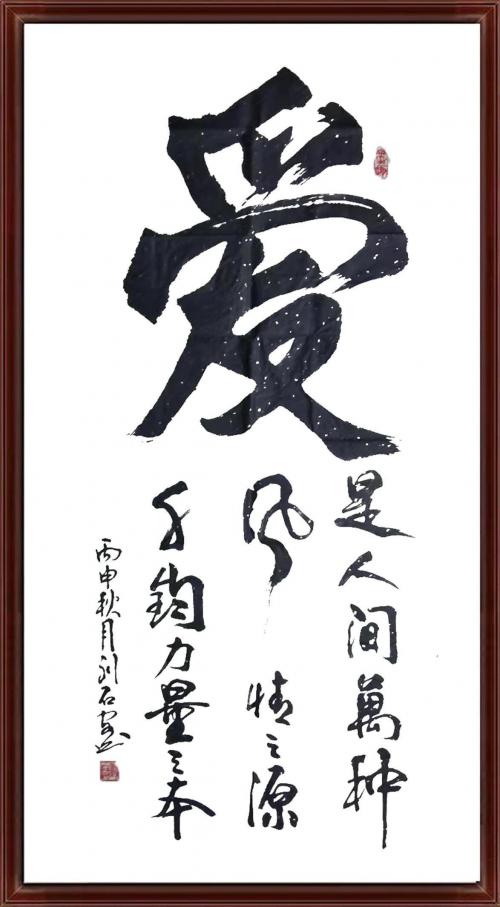 爱
是人间萬种
风情之源
千钧力量之本
丙申秋月刘石安书